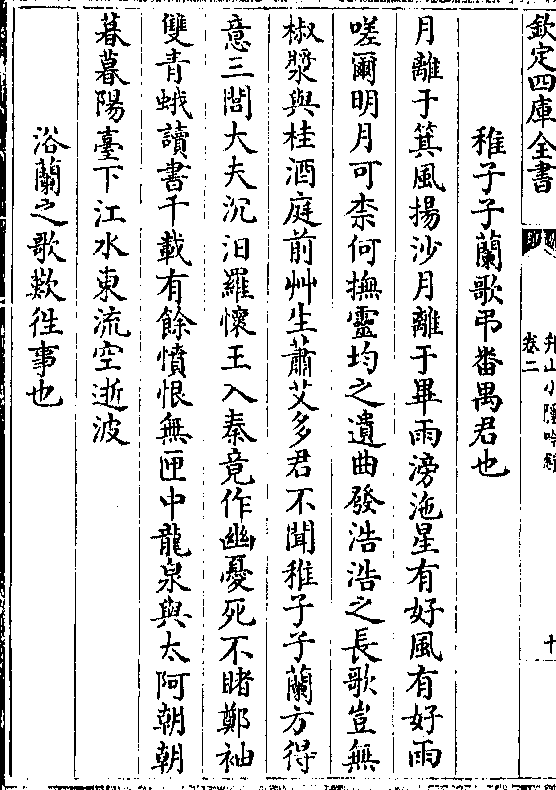 欽定四庫全書
弁山小隱吟錄
卷二
十
稚子子蘭歌弔番禺君也
月離于箕風揚沙月離于畢雨滂沲星有好風有好雨
嗟爾明月可柰何撫靈均之遺曲發浩浩之長歌豈無
椒漿與桂酒庭前艸生蕭艾多君不聞稚子子蘭方得
意三閭大夫沉汨羅懷王入秦竟作幽憂死不睹鄭袖
雙青蛾讀書千載有餘憤恨無匣中龍泉與太阿朝朝
暮暮陽臺下江水東流空逝波
浴蘭之歌歎徃事也